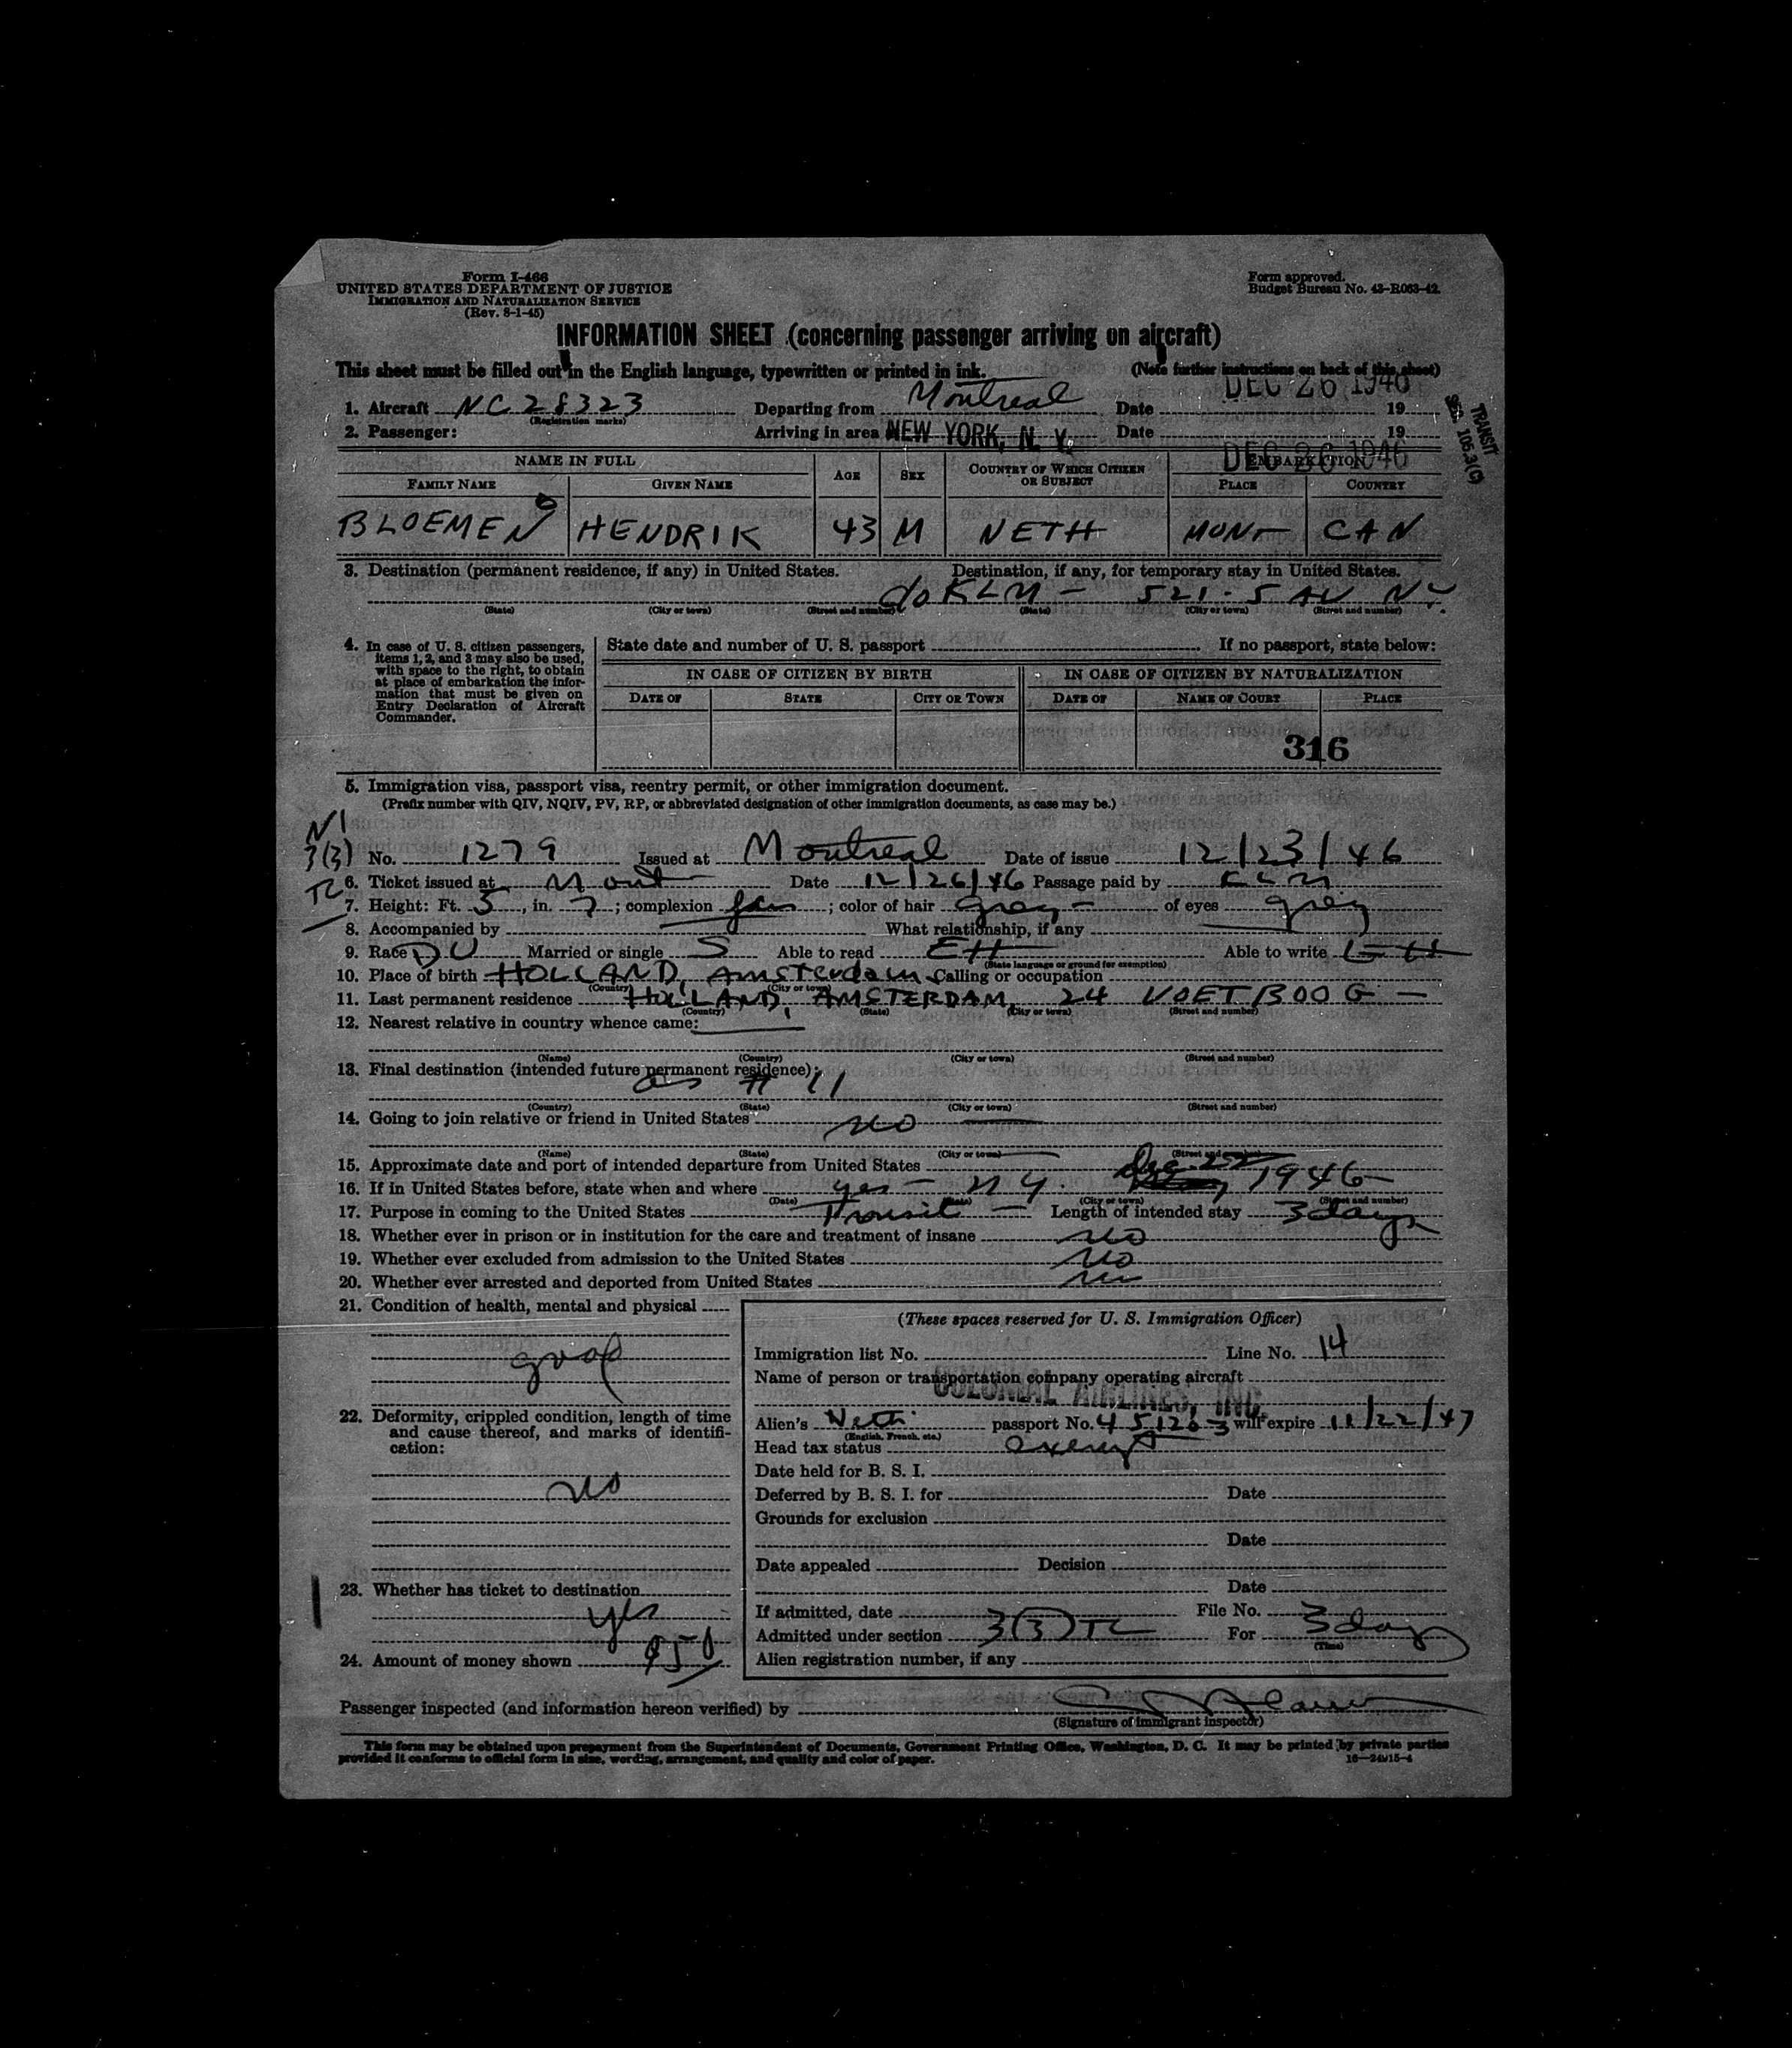 Form I-466
UNITED STATES DEPARTMENT OF JUSTICE
IMMIGRATION AND NATURALIZATION SERVICE
(Rev. 8-1-45)
Form approved.
Budget Bureau No. 43-R063-42.
INFORMATION SHEET (concerning passenger arriving on aircraft)
This sheet must be filled out in the English language, typewritten or printed in ink. (Note further instructions on back of this sheet)
1. Aircraft NC 28323 Departing from Montreal Date DEC 26 1946 19
(Registration marks)
2. Passenger: Arriving in area NEW YORK, N. Y. Date DEC 26 1946 19
TRANSIT
SEC. 105.3(C)
NAME IN FULL AGE SEX COUNTRY OF WHICH CITIZEN OR SUBJECT EMBARKATION
FAMILY NAME GIVEN NAME PLACE COUNTRY
BLOEMEN HENDRIK 43 M NETH MONT CAN
3. Destination (permanent residence, if any) in United States. Destination, if any, for temporary stay in United States.
c/o KLM - 521 - 5 AV NY.
(State) (City or town) (Street and number) (State) (City or town) (Street and number)
4. In case of U. S. citizen passengers, items 1, 2, and 3 may also be used, with space to the right, to obtain at place of embarkation the information that must be given on Entry Declaration of Aircraft Commander.
State date and number of U. S. passport If no passport, state below:
IN CASE OF CITIZEN BY BIRTH IN CASE OF CITIZEN BY NATURALIZATION
DATE OF STATE CITY OR TOWN DATE OF NAME OF COURT PLACE
316
5. Immigration visa, passport visa, reentry permit, or other immigration document.
(Prefix number with QIV, NQIV, PV, RP, or abbreviated designation of other immigration documents, as case may be.)
3(3) No. 1279 Issued at Montreal Date of issue 12/23/46
6. Ticket issued at Mont Date 12/26/46 Passage paid by KLM
7. Height: Ft. 5, in. 7; complexion fair; color of hair grey - of eyes grey
8. Accompanied by What relationship, if any
9. Race DU Married or single S Able to read EH Able to write EH
(State language or ground for exemption)
10. Place of birth HOLLAND, Amsterdam Calling or occupation
(Country) (City or town)
11. Last permanent residence HOLLAND, AMSTERDAM, 24 VOETBOOG -
(Country) (State) (City or town) (Street and number)
12. Nearest relative in country whence came:
(Name) (Country) (City or town) (Street and number)
13. Final destination (intended future permanent residence):
as # 11
(Country) (State) (City or town) (Street and number)
14. Going to join relative or friend in United States no
(Name) (State) (City or town) (Street and number)
15. Approximate date and port of intended departure from United States
16. If in United States before, state when and where yes - NY. Dec. 22 1946
(Date) (State) (City or town) (Street and number)
17. Purpose in coming to the United States Transit - Length of intended stay 3 days
18. Whether ever in prison or in institution for the care and treatment of insane no
19. Whether ever excluded from admission to the United States no
20. Whether ever arrested and deported from United States no
21. Condition of health, mental and physical
good
22. Deformity, crippled condition, length of time and cause thereof, and marks of identification:
no
23. Whether has ticket to destination
yes
24. Amount of money shown $50
(These spaces reserved for U. S. Immigration Officer)
Immigration list No. Line No. 14
Name of person or transportation company operating aircraft
COLONIAL AIRLINES, INC.
Alien's Neth. passport No. 451203 will expire 11/22/47
(English, French, etc.)
Head tax status exempt
Date held for B. S. I.
Deferred by B. S. I. for Date
Grounds for exclusion
Date
Date appealed Decision
Date
If admitted, date File No.
Admitted under section 3(3) TC For 3 days
(Time)
Alien registration number, if any
Passenger inspected (and information hereon verified) by
(Signature of immigrant inspector)
This form may be obtained upon prepayment from the Superintendent of Documents, Government Printing Office, Washington, D. C. It may be printed by private parties
provided it conforms to official form in size, wording, arrangement, and quality and color of paper. 16-24915-4